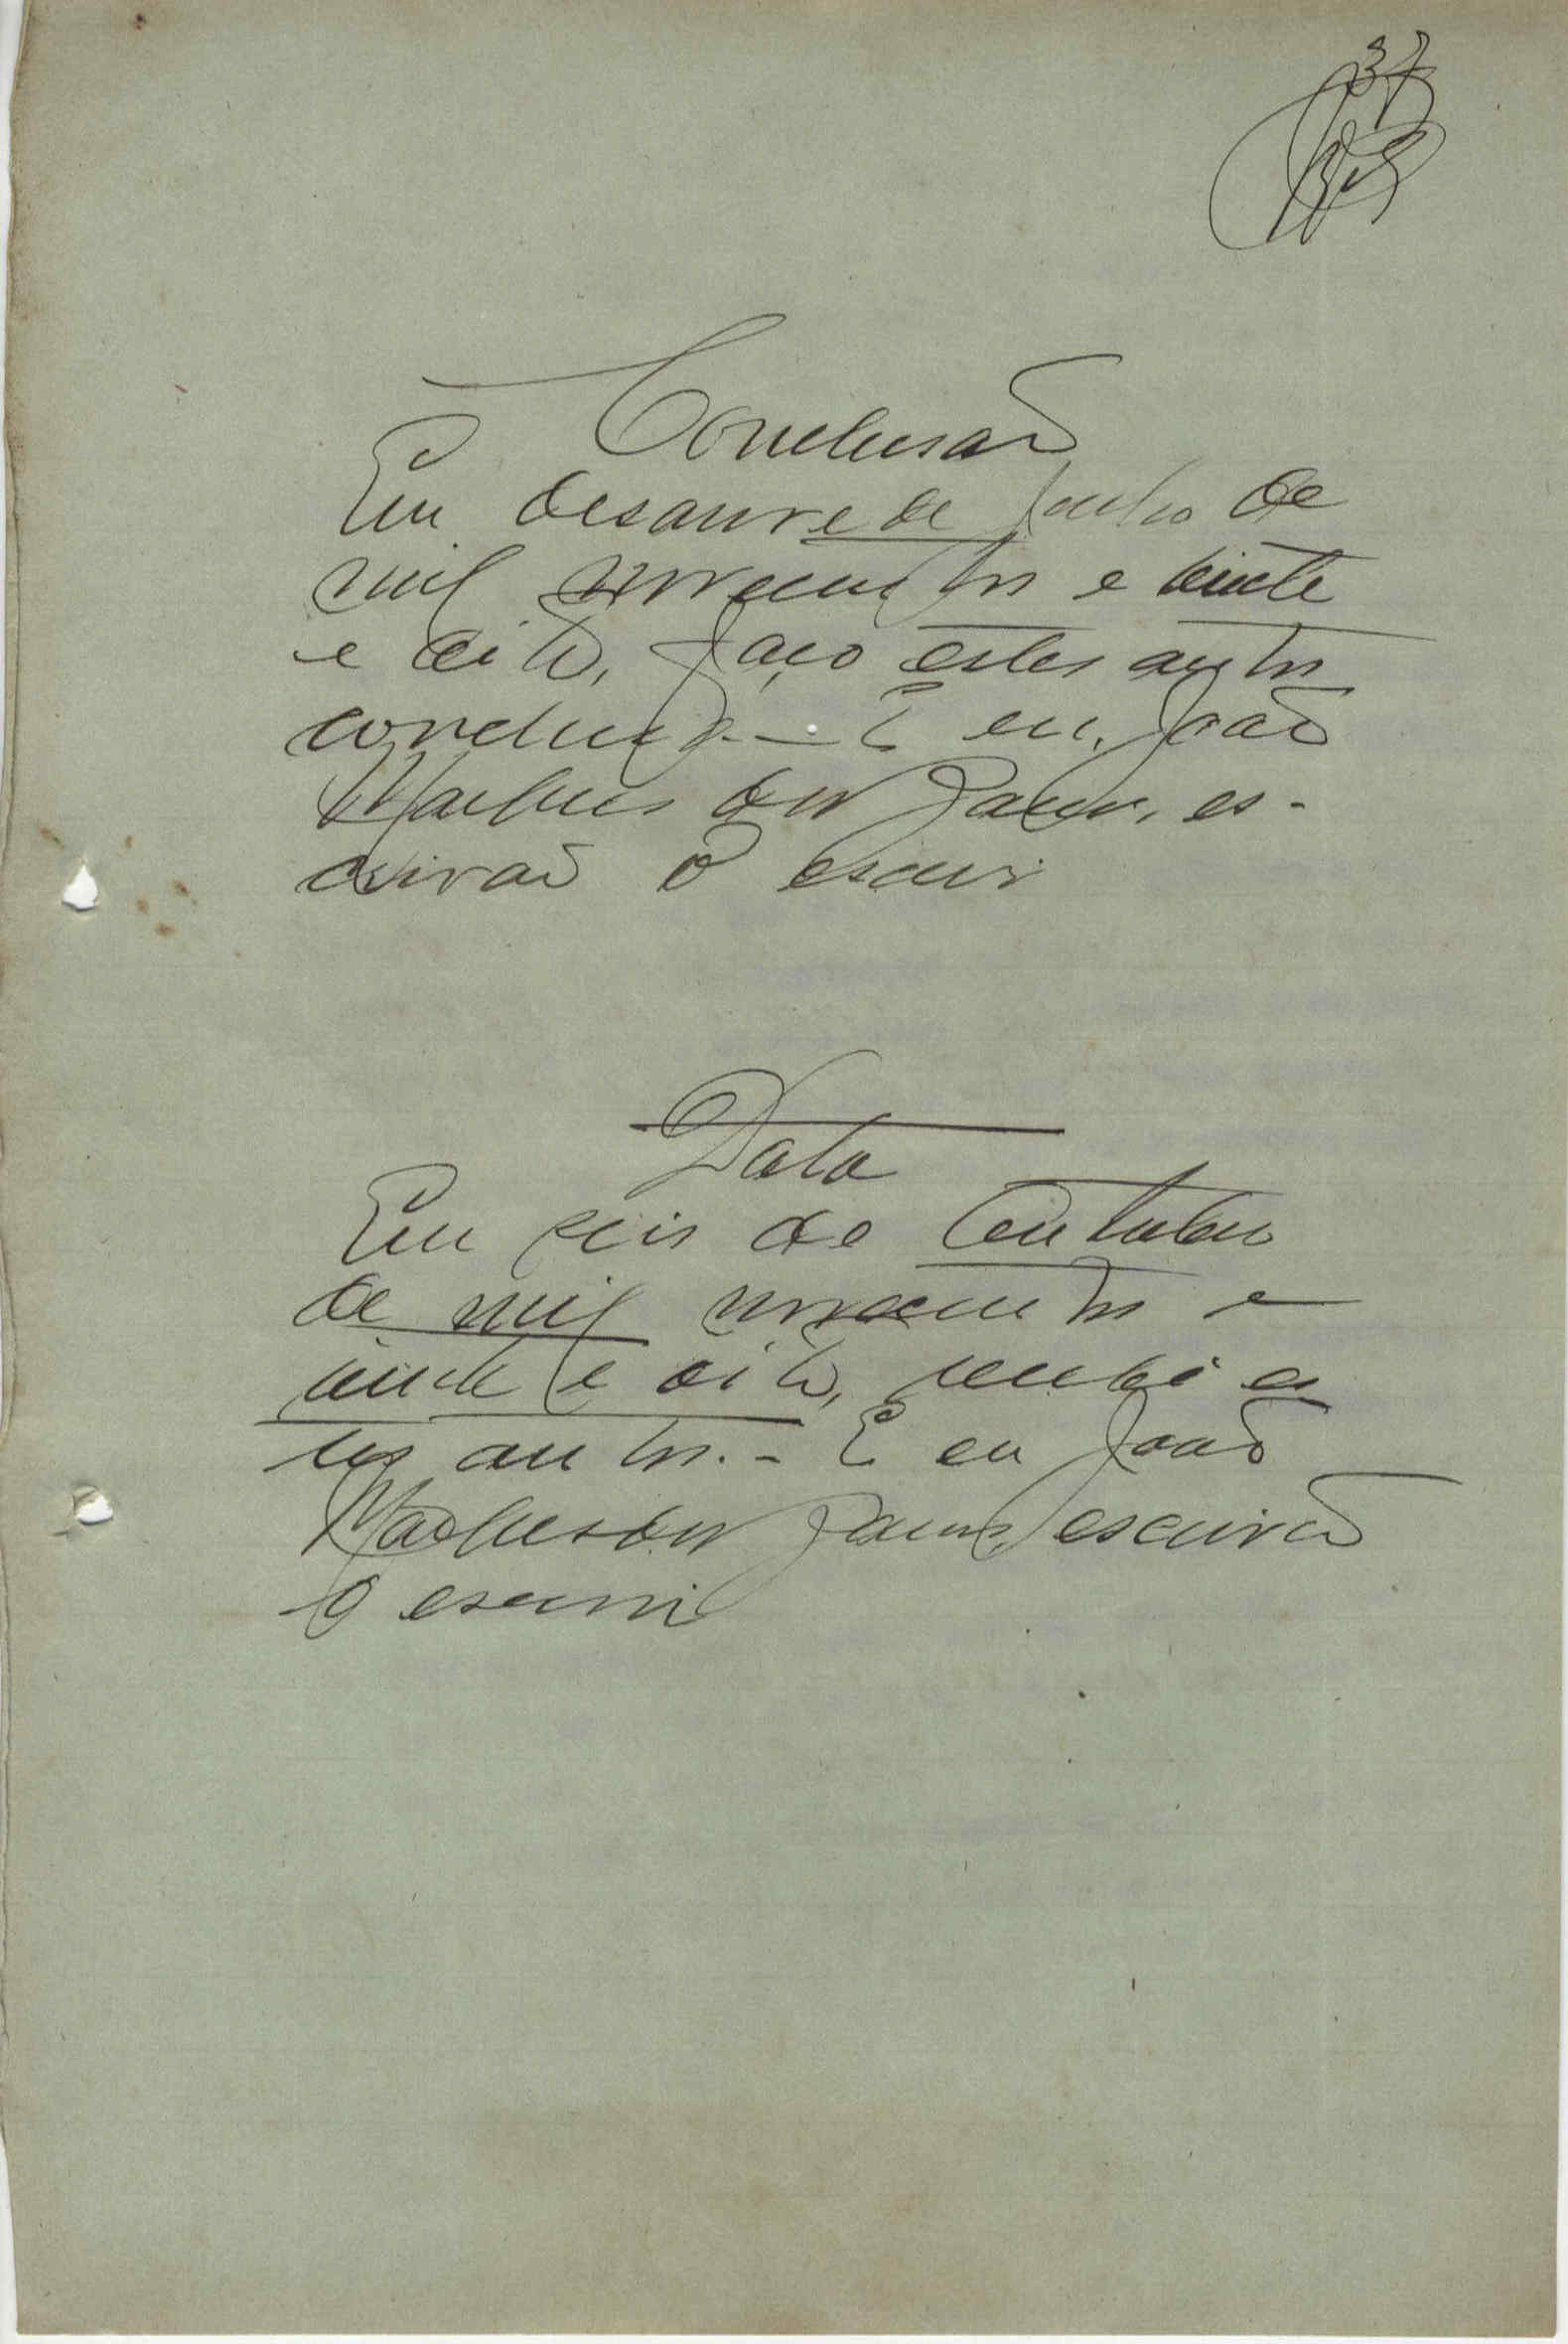 37
Conclusão
Em desanove de Julho de
mil novecentos e vinte
e oito, faço estes autos
conclusos.— E eu, João
dos es-
crivão o escrevi
Data
Em seis de Outubro
de mil novecentos e
vinte e oito, recebi es
tes autos.- E eu João
dos escrivão
o escrevi